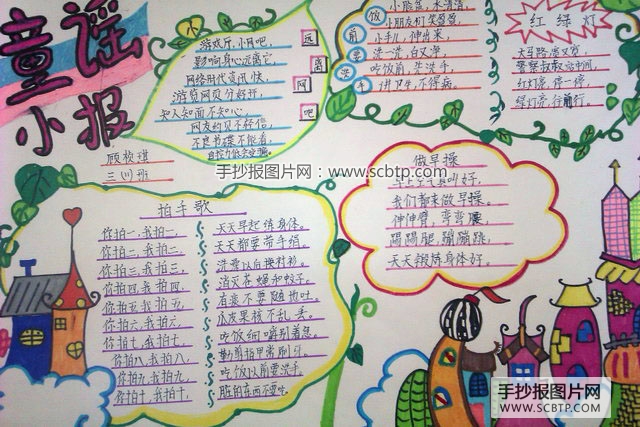 童谣
小报
顾
三（）班
游戏厅，小网吧，
影响身心远离它。
网络时代资讯快，
游览网页分好歹。
知人知面不知心，
网友约见不轻信。
不良书刊不能看，
远
离
网
吧
饭
前
要
洗
手
小脸盆，水清清，
小朋友们笑盈盈，
小手儿，伸出来，
洗一洗，白又净，
吃饭前，先洗手，
讲卫生，不得病。
红绿灯
大马路，宽又宽，
警察叔叔站中间，
红灯亮，停一停，
绿灯亮，往前行。
手抄报图片网：www.scbtp.com
做早操
早上空气真叫好，
我们都来做早操。
伸伸臂，弯弯腰，
踢踢腿，蹦蹦跳，
天天锻炼身体好。
拍手歌
你拍一，我拍一， 天天早起练身体。
你拍二，我拍二， 天天都要带手绢。
你拍三，我拍三， 洗澡以后换衬衫。
你拍四，我拍四， 消灭苍蝇和蚊子。
你拍五，我拍五， 有痰不要随地吐。
你拍六，我拍六， 瓜皮果核不乱丢。
你拍七，我拍七， 吃饭细嚼别着急。
你拍八，我拍八， 勤剪指甲常刷牙。
你拍九，我拍九， 吃饭以前要洗手。
你拍十，我拍十， 脏的东西不要吃。
手抄报图片网
WWW.SCBTP.COM